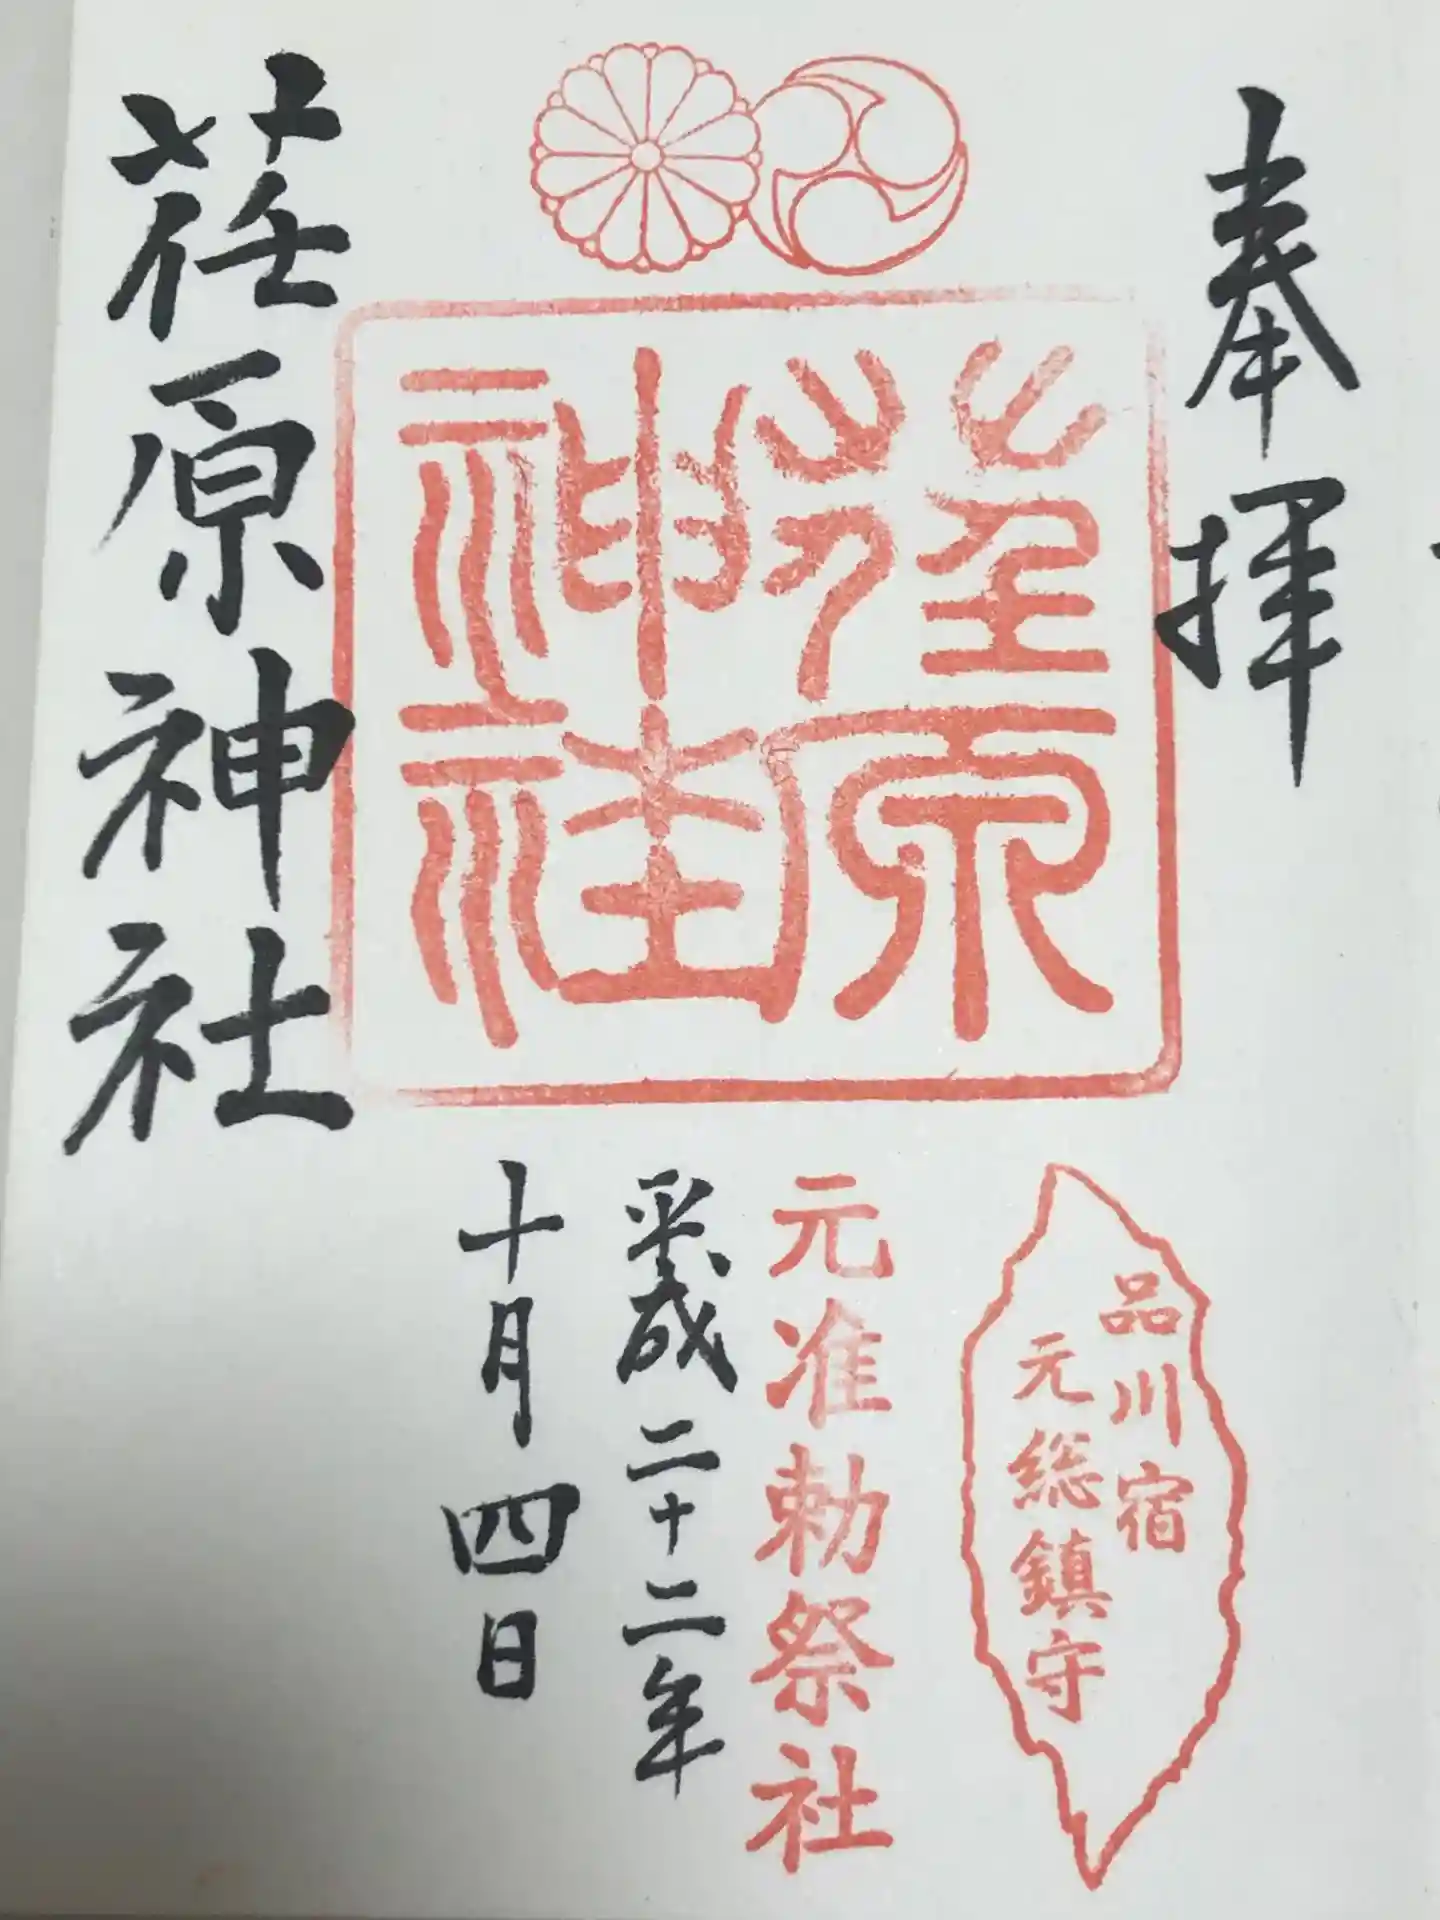 奉拝
品川宿
元総鎮守
荏原
神社
元准勅祭社
平成二十二年
十月四日
荏原神社